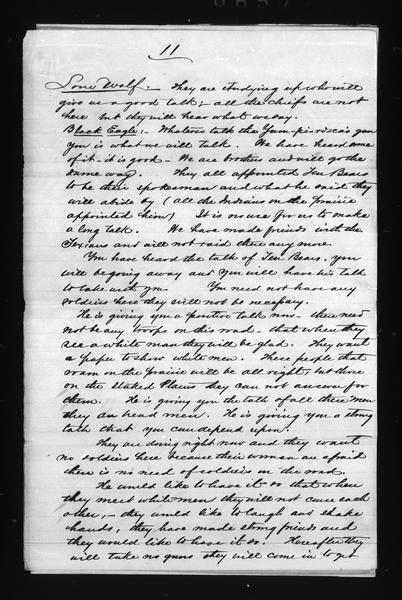 11
Lone Wolf:— They are studying up who will
give us a good talk;— all the chiefs are not
here but they will hear what we say.
Black Eagle:— Whatever talk the Yam-pi-ricca's gave
you is what we will talk. We have heard some
of it - it is good - We are brothers and will go the
same way. They all appointed Ten Bears
to be their spokesman and what he said they
will abide by (all the Indians on the Prairie
appointed him) It is no use for us to make
a long talk. We have made friends with the
Texians and will not raid there any more.
You have heard the talk of Ten Bears. you
will be going away and you will have his talk
to take with you. You need not have any
soldiers here they will not be necessary.
He is giving you a positive talk now - there need
not be any troops on this road - that when they
see a white man they will be glad. They want
a paper to show white men. These people that
roam on the prairie will be all right; but those
on the Staked Plains they can not answer for
them. He is giving you the talk of all these men
they are head men. He is giving you a strong
talk that you can depend upon.
They are doing right now and they want
no soldiers here because their women are afraid
there is no need of soldiers on the road.
He would like to have it so that when
they meet white men they will not curse each
other,- they would like to laugh and shake
hands, they have made strong friends and
they would like to have it so. Hereafter they
will take no guns they will come in to get